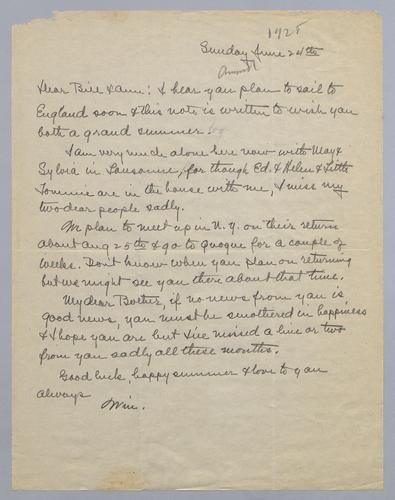 1928
Sunday June 24th
Dear Bill & Ann: I hear you plan to sail to
England soon & this note is written to wish you
both a grand summer
I am very much alone here now with May &
Sylvia in Lausanne, for though Ed. & Helen & Little
Tommie are in the house with me, I miss my
two dear people sadly.
We plan to meet up in N.Y. on their return
about Aug 25th & go to Quogue for a couple of
weeks. Don't know when you plan on returning
but we might see you there about that time.
My dear Brother, if no news from you is
good news, you must be smothered in happiness
& I hope you are but I've missed a line or two
from you sadly all these months.
Good luck, happy summer & love to you
always
Win.